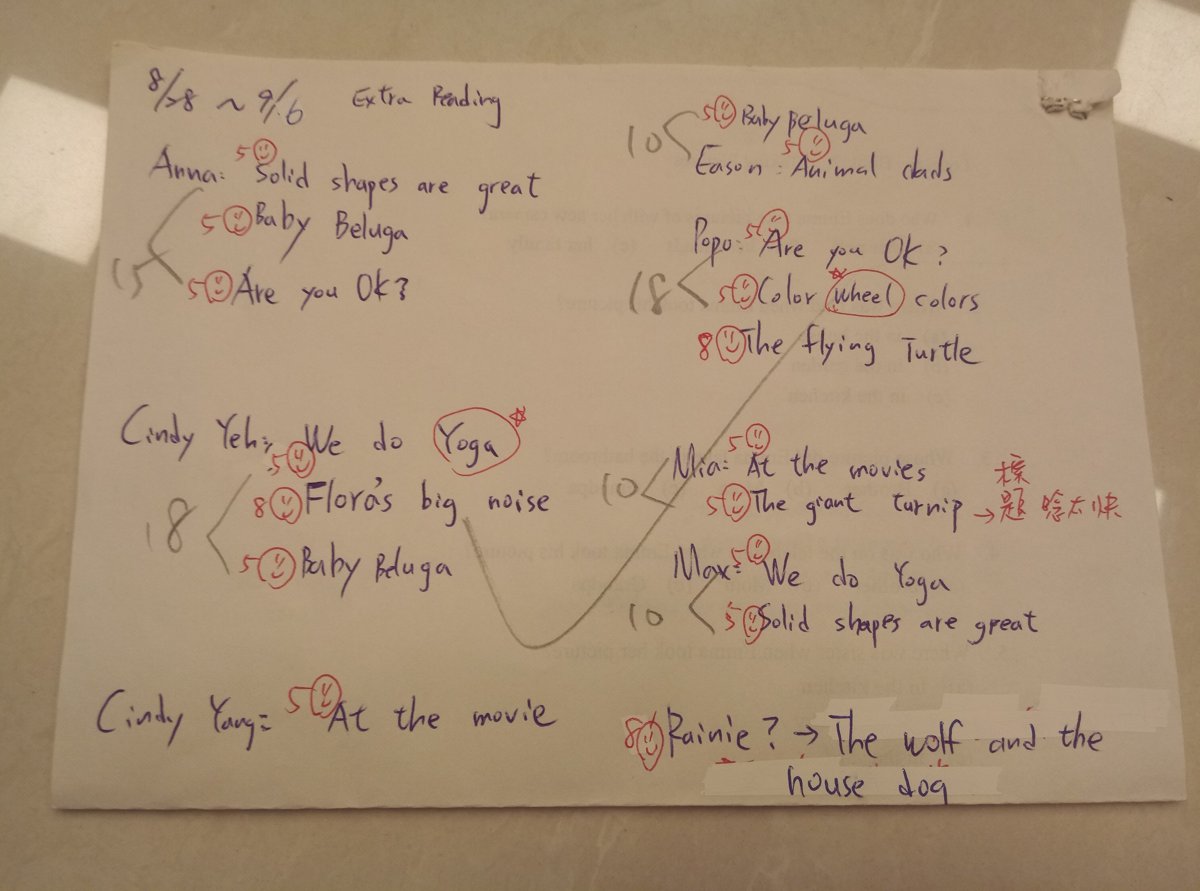 8/28 ~ 9/6 Extra Reading
Anna: 5 Solid shapes are great
5 Baby Beluga
15
5 Are you Ok?
Cindy Yeh: 5 We do Yoga
8 Flora's big noise
18
5 Baby Beluga
Cindy Yang: 5 At the movie
5 Baby Beluga
10
Eason: 5 Animal dads
Popo: 5 Are you Ok?
18
5 Color wheel colors
8 The flying Turtle
Mia: 5 At the movies
10
5 The giant turnip → 標題 唸太快
Max: 5 We do Yoga
10
5 Solid shapes are great
8 Rainie? → The wolf and the
house dog